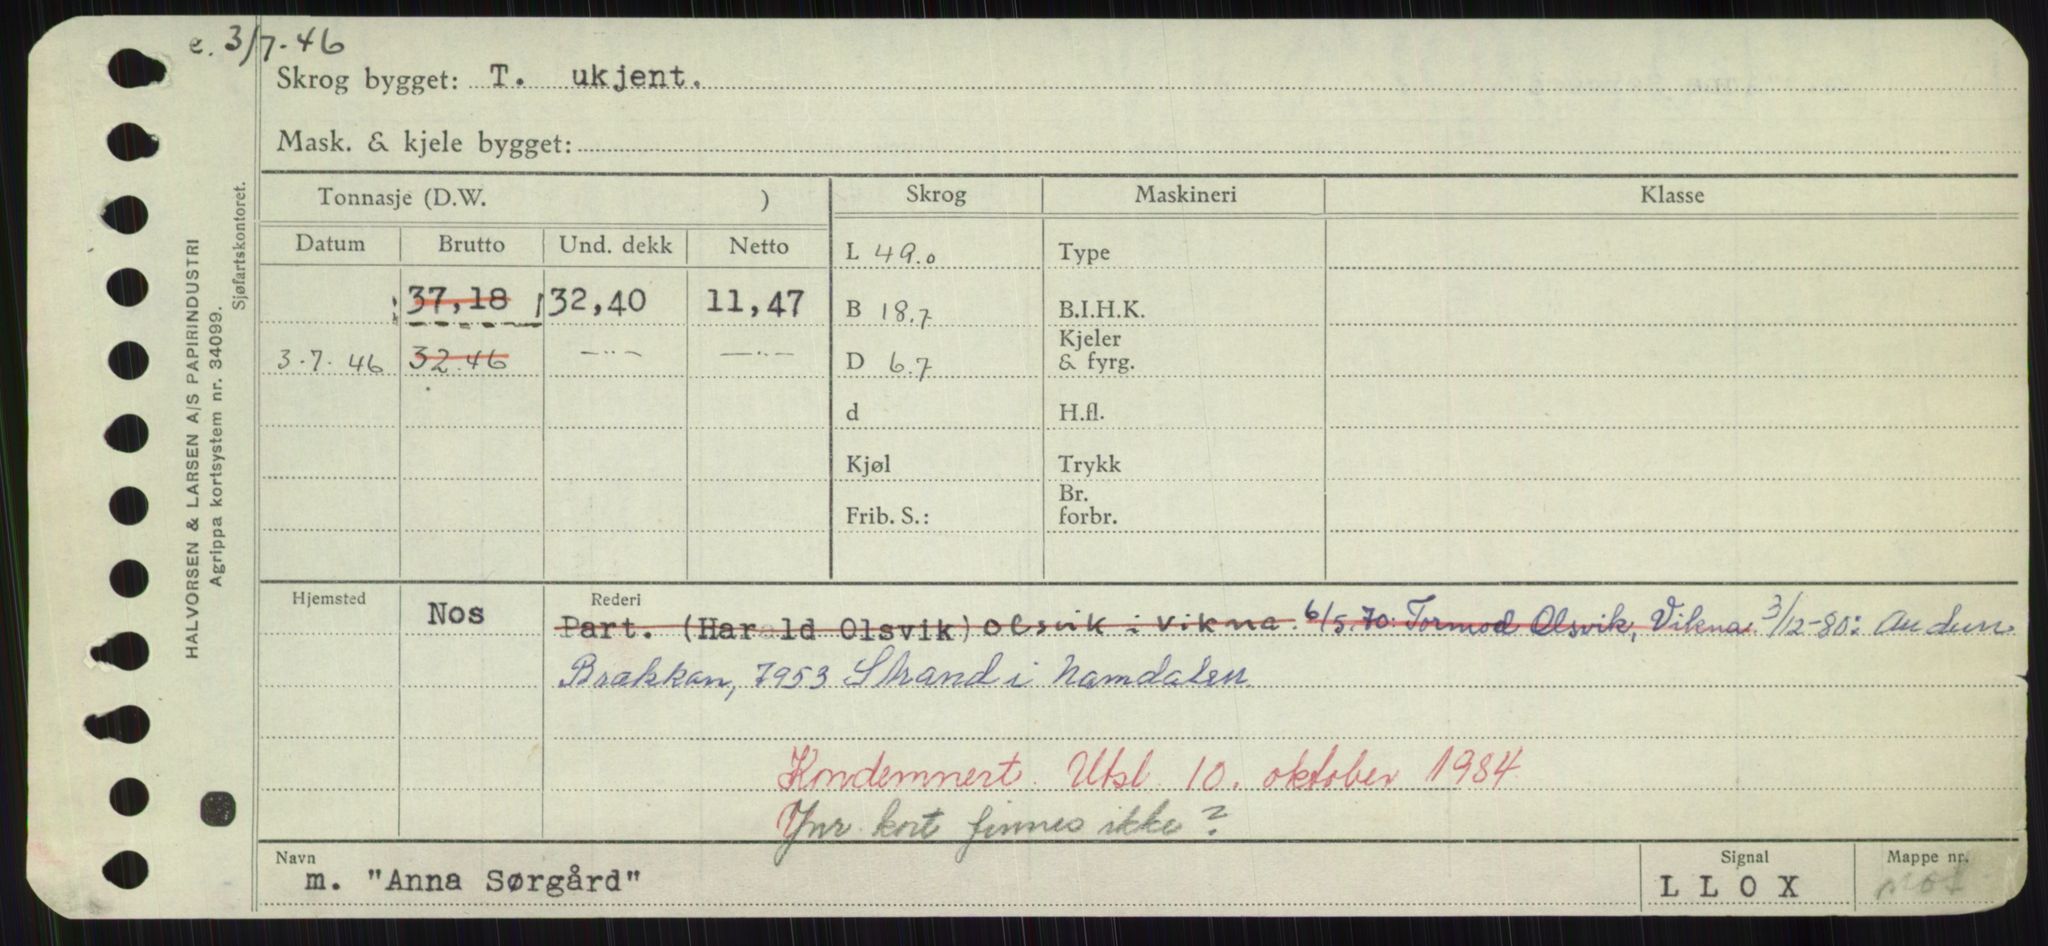 e. 3/7-46
Skrog bygget: T. ukjent.
Mask. & kjele bygget:
HALVORSEN & LARSEN A/S PAPIRINDUSTRI
Agrippa kortsystem nr. 34099.
Sjøfartskontoret.
Tonnasje (D.W. ) Skrog Maskineri Klasse
Datum Brutto Und. dekk Netto
L 49.0 Type
37,18 32,40 11,47
B 18.7 B.I.H.K.
3.7.46 32.46 —"— —"—
D 6.7 Kjeler & fyrg.
d H.fl.
Kjøl Trykk
Frib. S.: Br. forbr.
Hjemsted Nos Rederi
Part. (Harald Olsvik) Olsvik i Vikna. 6/5.70: Tormod Olsvik, Vikna. 3/12-80: Audun
Brækkan, 7953 Strand i Namdalen
Kondemnert. Utsl. 10. oktober 1984
Ynr. kort finnes ikke?
Navn Signal Mappe nr.
m. "Anna Sørgård" L L O X